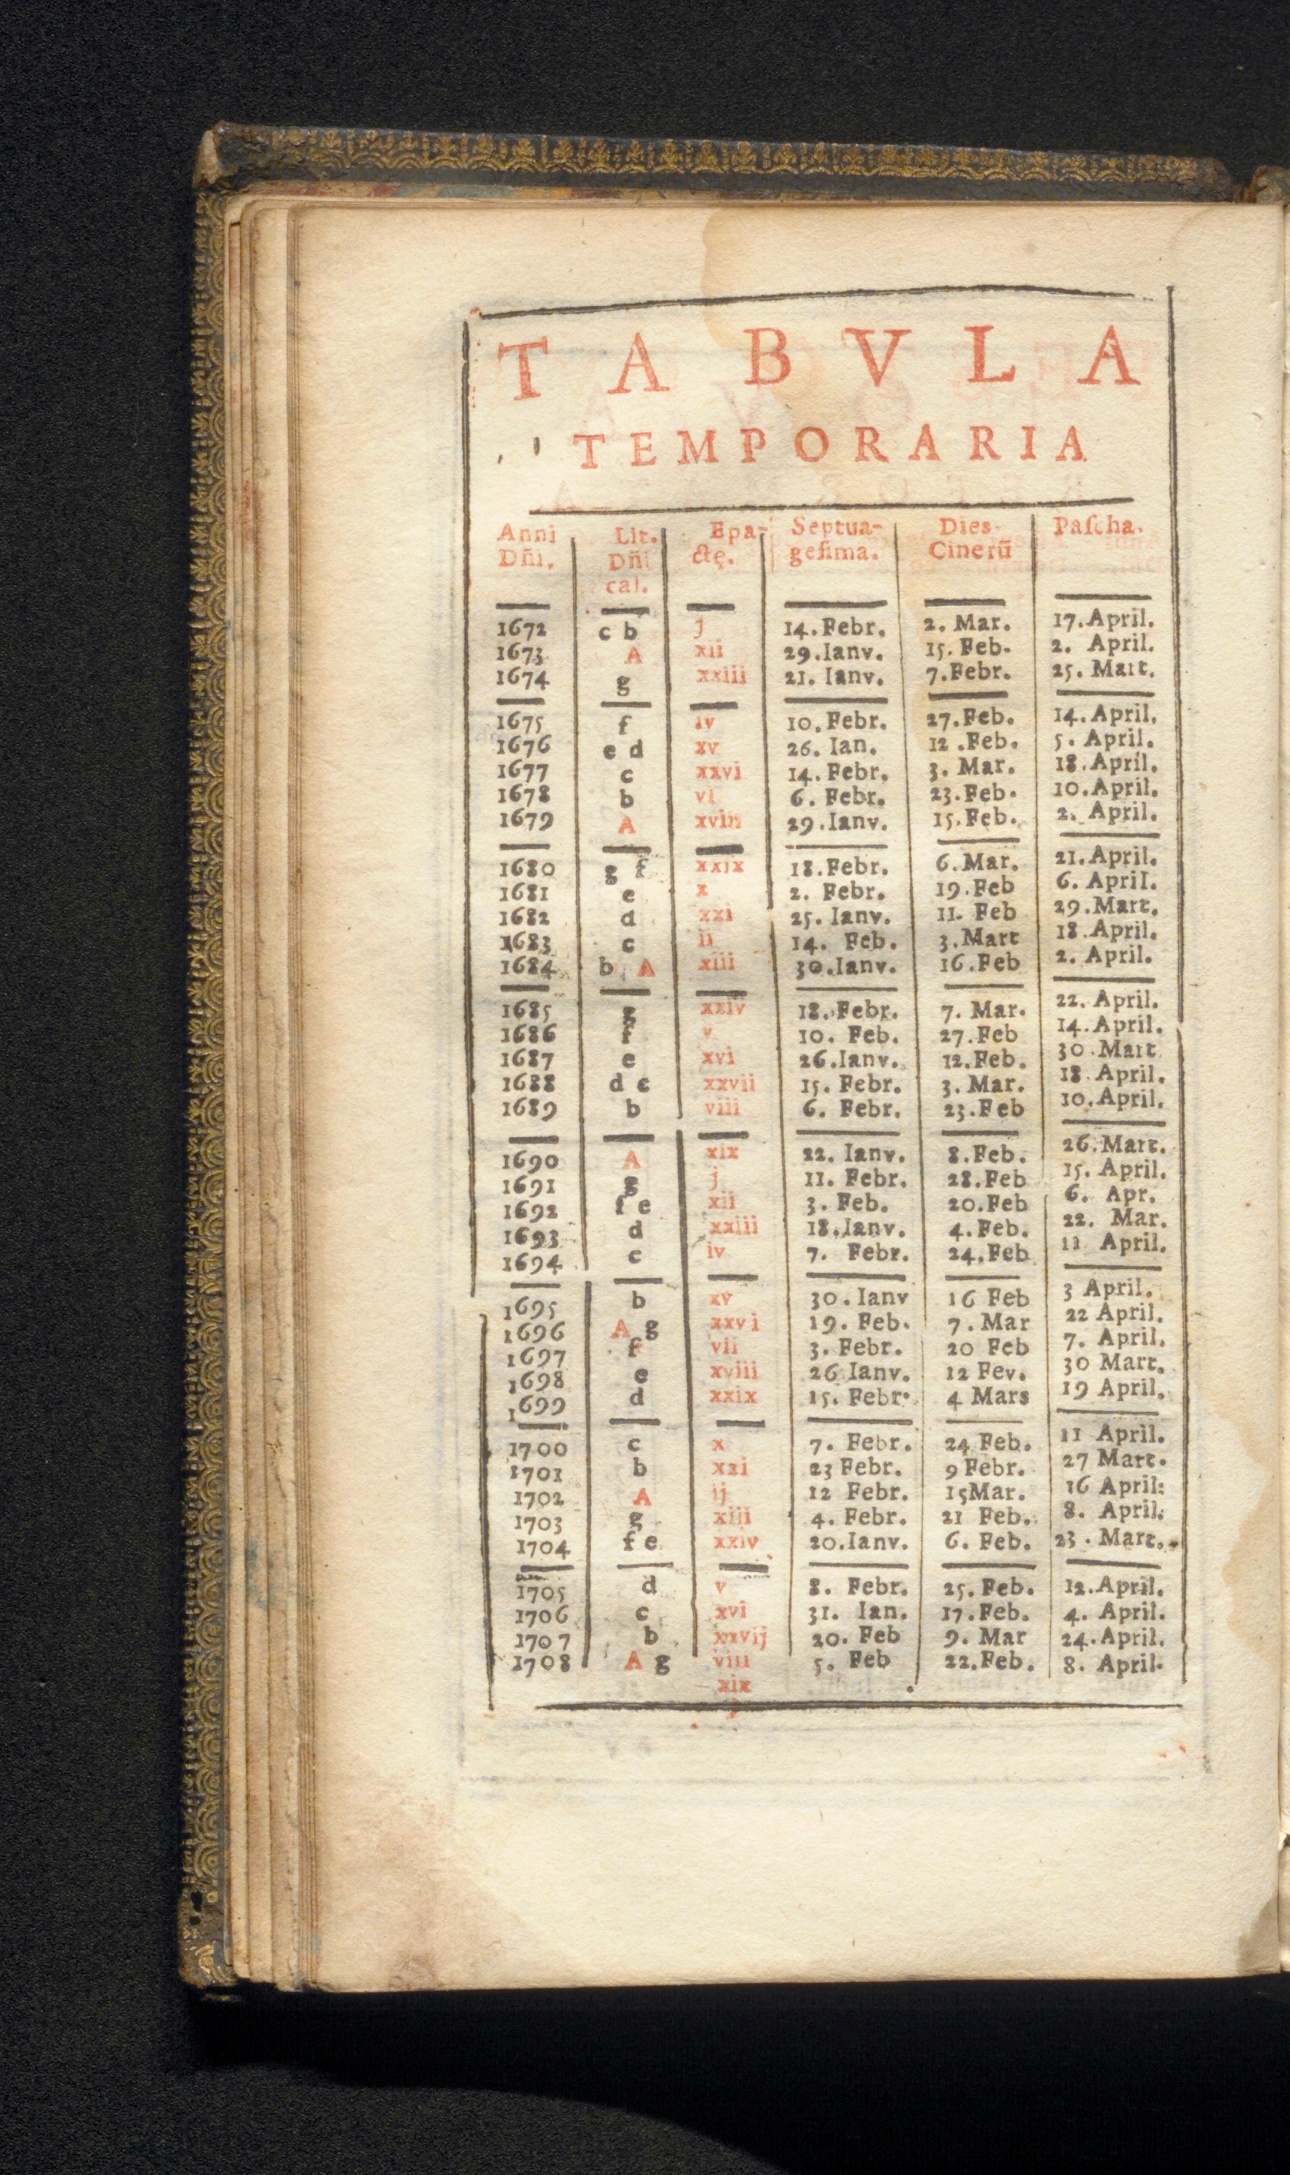 T A B V L A
TEMPORARIA
Anni Dñi. Lit. Dñi cal. Epa-ctę. Septua-gesima. Dies Cinerũ Pascha.
1672 c b j 14. Febr. 2. Mar. 17. April.
1673 A xii 29. Ianv. 15. Feb. 2. April.
1674 g xxiii 21. Ianv. 7. Febr. 25. Mart.
1675 f iv 10. Febr. 27. Feb. 14. April.
1676 e d xv 26. Ian. 12. Feb. 5. April.
1677 c xxvi 14. Febr. 3. Mar. 18. April.
1678 b vi 6. Febr. 23. Feb. 10. April.
1679 A xviii 29. Ianv. 15. Feb. 2. April.
1680 g f xxix 18. Febr. 6. Mar. 21. April.
1681 e x 2. Febr. 19. Feb 6. April.
1682 d xxi 25. Ianv. 11. Feb 29. Mart.
1683 c ii 14. Feb. 3. Mart 18. April.
1684 b A xiii 30. Ianv. 16. Feb 2. April.
1685 g xxiv 18. Febr. 7. Mar. 22. April.
1686 f v 10. Feb. 27. Feb 14. April.
1687 e xvi 26. Ianv. 12. Feb. 30. Mart
1688 d c xxvii 15. Febr. 3. Mar. 18. April.
1689 b viii 6. Febr. 23. Feb 10. April.
1690 A xix 22. Ianv. 8. Feb. 26. Mart.
1691 g j 11. Febr. 28. Feb 15. April.
1692 f e xii 3. Feb. 20. Feb 6. Apr.
1693 d xxiii 18. Ianv. 4. Feb. 22. Mar.
1694 c iv 7. Febr. 24. Feb 11 April.
1695 b xv 30. Ianv 16 Feb 3 April.
1696 A g xxvi 19. Feb. 7. Mar 22 April.
1697 f vii 3. Febr. 20 Feb 7. April.
1698 e xviii 26 Ianv. 12 Fev. 30 Mart.
1699 d xxix 15. Febr. 4 Mars 19 April.
1700 c x 7. Febr. 24 Feb. 11 April.
1701 b xxi 23 Febr. 9 Febr. 27 Mart.
1702 A ij 12 Febr. 15 Mar. 16 April:
1703 g xiii 4. Febr. 21 Feb. 8. April.
1704 f e xxiv 20. Ianv. 6. Feb. 23. Mart.
1705 d v 8. Febr. 25. Feb. 12. April.
1706 c xvi 31. Ian. 17. Feb. 4. April.
1707 b xxvij 20. Feb 9. Mar 24. April.
1708 A g viii 5. Feb 22. Feb. 8. April.
xix